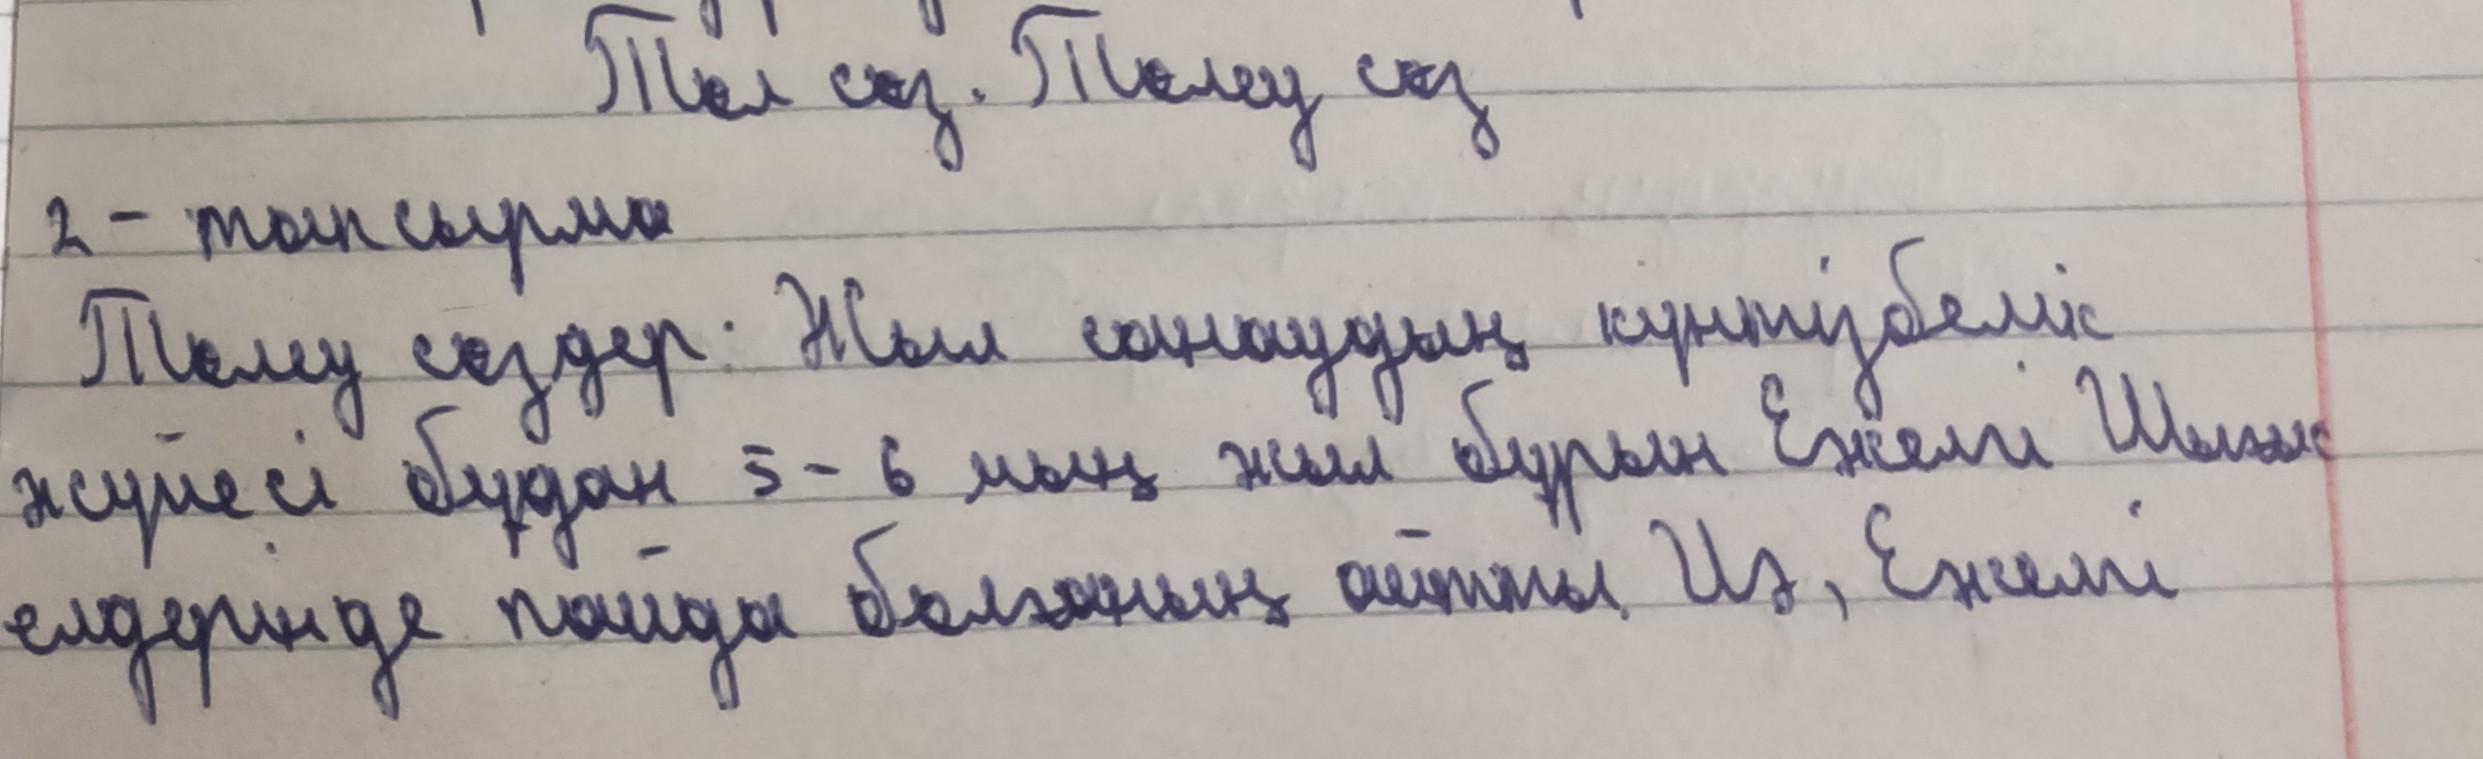 Төл сөз. Төлеу сөз
2 - тапсырма
Төлеу сөздер: Жыл санаудың күнтізбелік
жүйесі бұдан 5-6 мың жыл бұрын Ежелгі Шығыс
елдерінде пайда болғаның айтты. Иә, Ежелгі